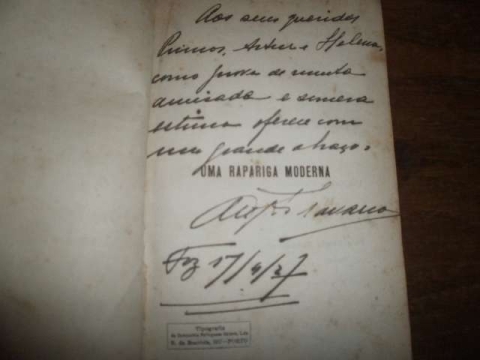 Aos seus queridos
Primos, Artur e Helena,
como prova de muita
amisade e sincera
estima oferece com
um grande abraço.
UMA RAPARIGA MODERNA
Foz 17/9/37
Tipografia
PORTO